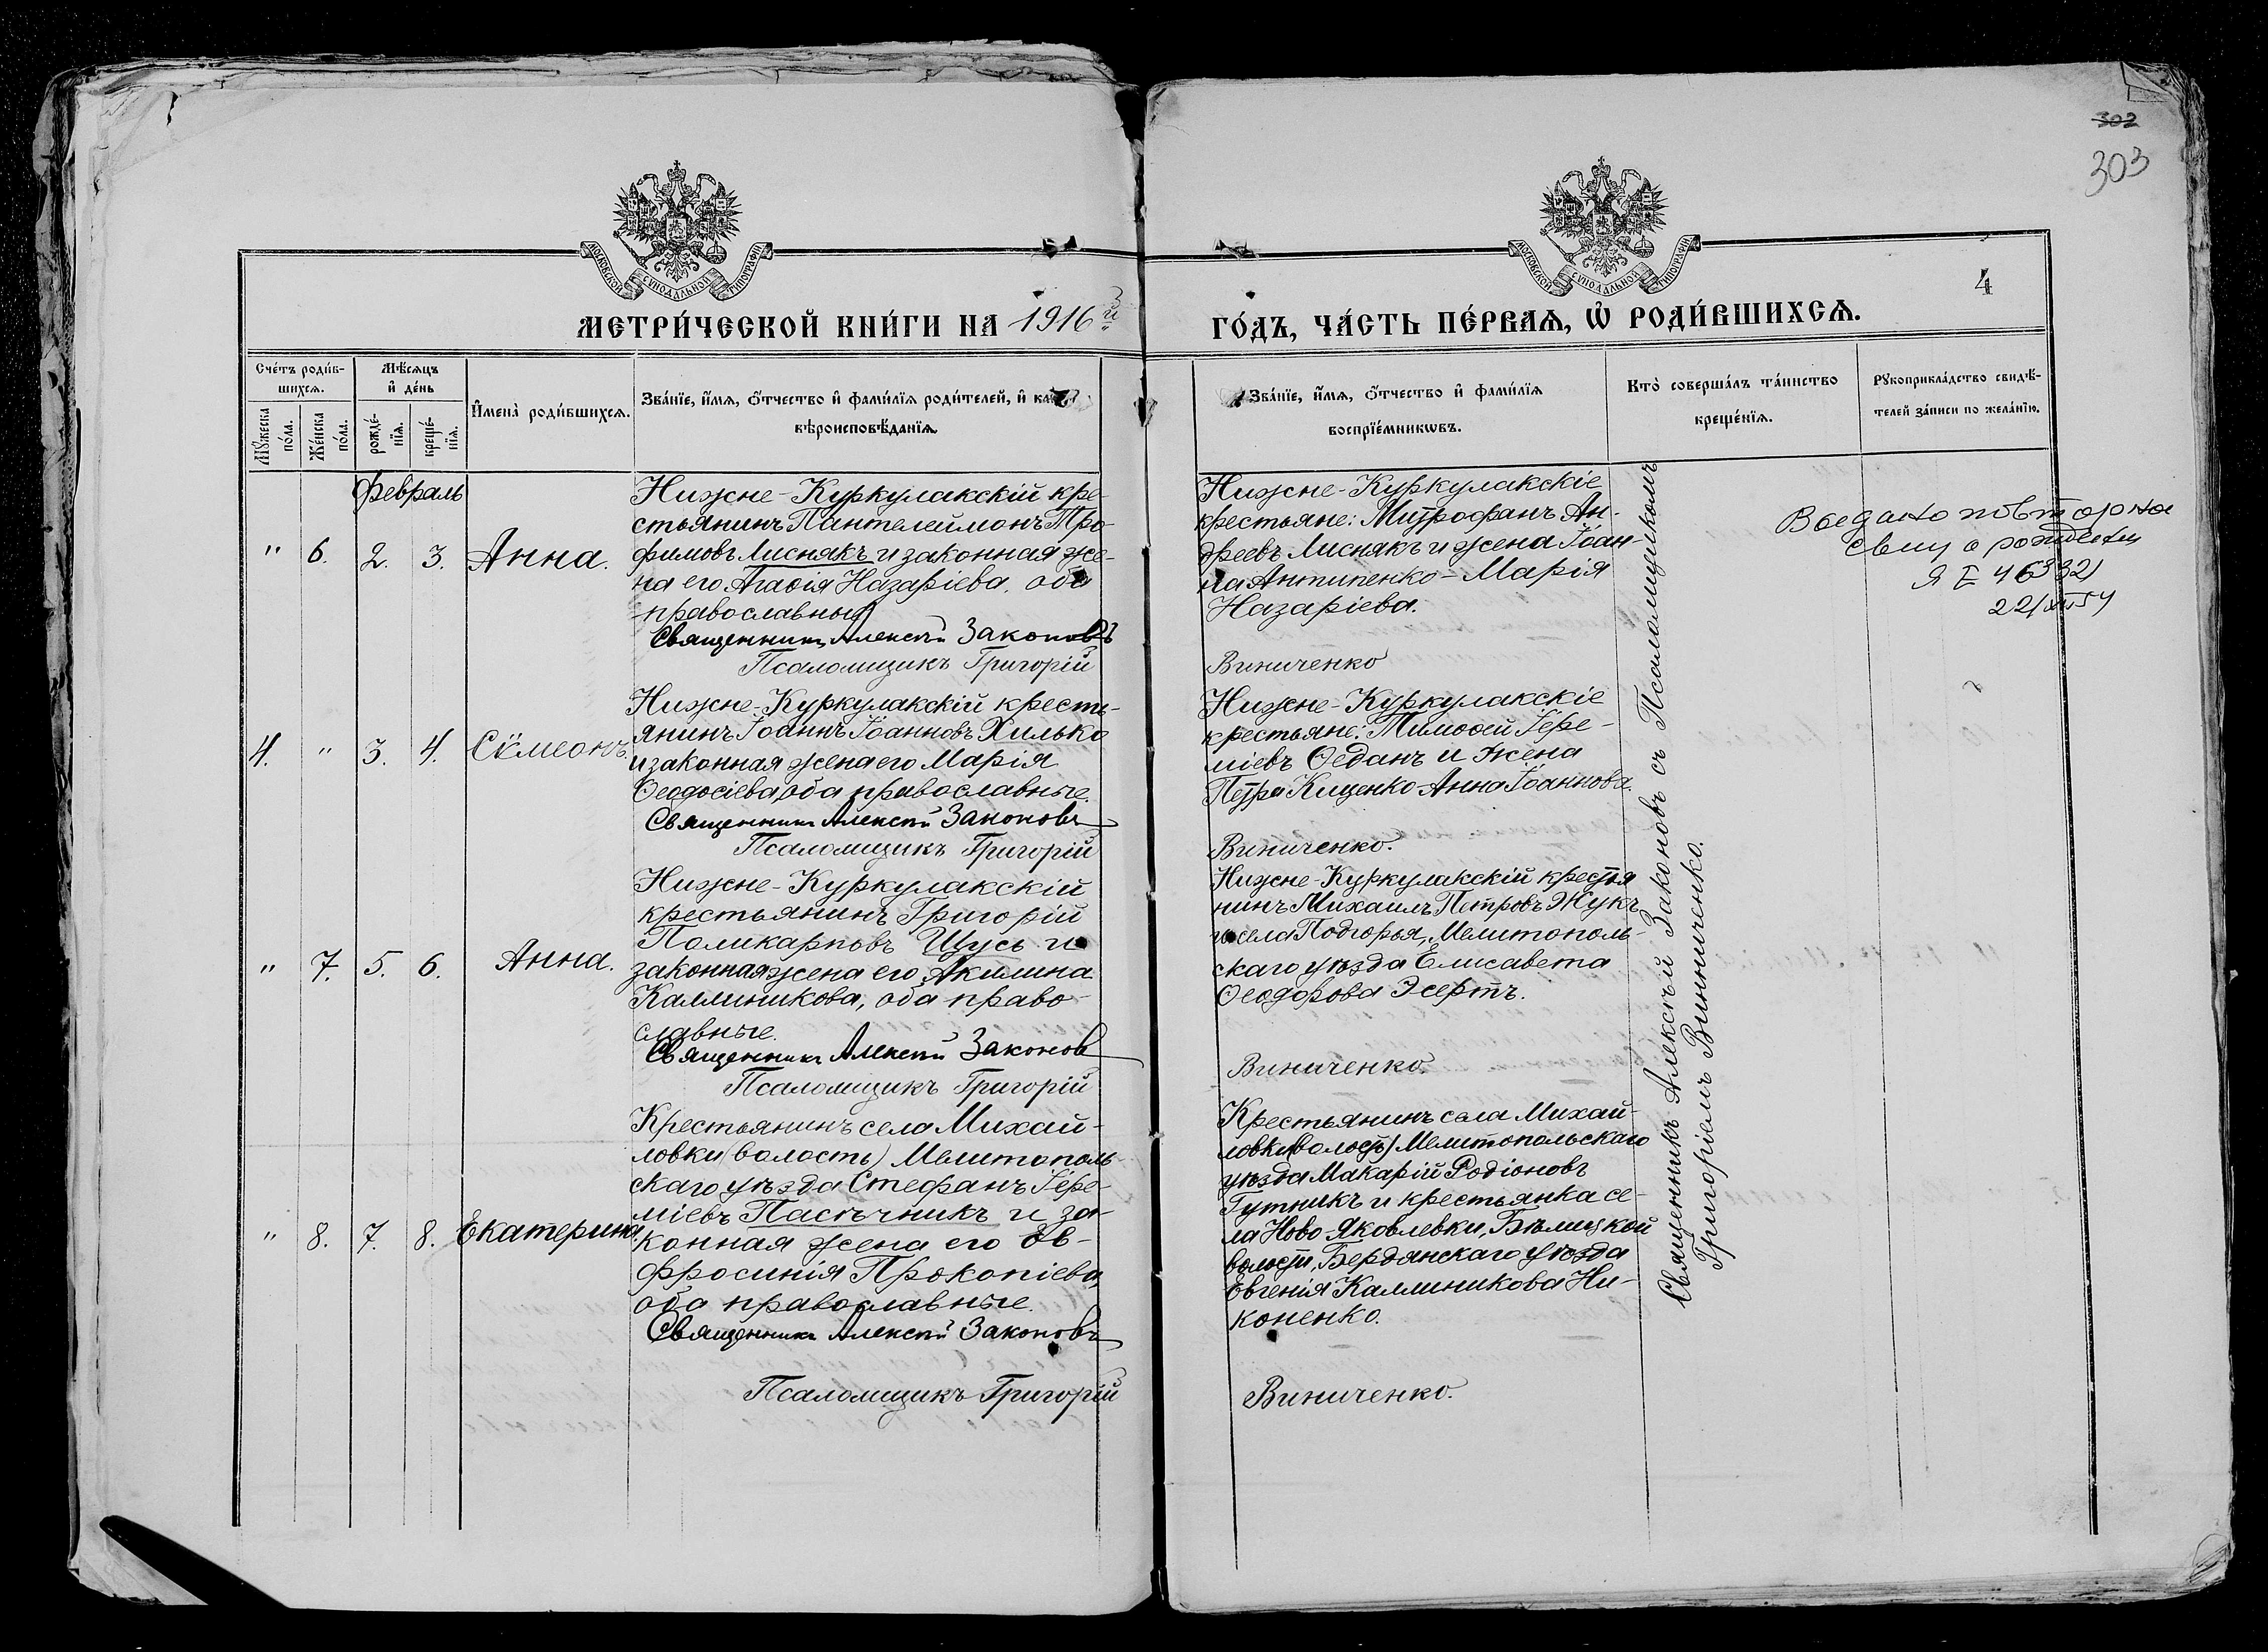 302
303
МОСКОВСКОЙ СѴНОДАЛЬНОЙ ТИПОГРАФІИ
МОСКОВСКОЙ СѴНОДАЛЬНОЙ ТИПОГРАФІИ
4
МЕТРИ́ЧЕСКОЙ КНИ́ГИ НА 1916й
ГО́ДЪ, ЧА́СТЬ ПЕ́РВАѦ, Ѡ҆ РОДИ́ВШИХСѦ.
Сче́тъ роди́в-
шихсѧ.
Мꙋ́жеска по́ла.
Же́нска по́ла.
Мѣ́сѧцъ
и҆ де́нь
рожде́-
нїѧ.
креще́-
нїѧ.
И҆мена̀ роди́вшихсѧ.
Зва́нїе, и҆́мѧ, ѻ҆́тчество и҆ фами́лїѧ роди́телей, и҆
вѣроисповѣ́данїѧ.
Зва́нїе, и҆́мѧ, ѻ҆́тчество и҆ фами́лїѧ
воспрїе́мникѡвъ.
Кто̀ соверша́лъ та́инство
креще́нїѧ.
Рꙋкоприкла́дство свидѣ́-
телей за́писи по жела́нїю.
Февраль
" 6. 2. 3. Анна.
Нижне-Куркулакскій кре-
стьянинъ Пантелеймонъ Тро-
фимовъ Лиснякъ и законная же-
на его Агаѳія Назаріева, оба
православные
Священникъ Алексѣй Законовъ
Псаломщикъ Григорій
Нижне-Куркулакскіе
крестьяне: Митрофанъ Ан-
дреевъ Лиснякъ и жена Іоан-
на Антипенко - Марія
Назаріева.
Виниченко
Выдано повторное
свид о рождении
Я I 46332
4. " 3. 4. Сѵмеонъ.
Нижне-Куркулакскій кресть-
янинъ Іоаннъ Іоанновъ Хилько
и законная жена его Марія
Ѳеодосіева, оба православные.
Священникъ Алексѣй Законовъ
Псаломщикъ Григорій
Нижне-Куркулакскіе
крестьяне: Тимоѳей Іере-
міевъ Ѳеданъ и жена
Петра Кищенко Анна Іоаннова.
Виниченко.
" 7. 5. 6. Анна.
Нижне-Куркулакскій
крестьянинъ Григорій
Поликарповъ Щусь и
законная жена его Акилина
Каллиникова, оба право-
славные.
Священникъ Алексѣй Законов
Псаломщикъ Григорій
Нижне-Куркулакскій крестья
нинъ Михаилъ Петровъ Жукъ
и села Подгорья, Мелитополь-
скаго уѣзда Елисавета
Ѳеодорова Эсертъ.
Виниченко.
" 8. 7. 8. Екатерина.
Крестьянинъ села Михай-
ловки (волость) Мелитополь-
скаго уѣзда Стефанъ Іере-
міевъ Пасѣчникъ и за-
конная жена его Ев-
фросинія Прокопіева,
оба православные.
Священникъ Алексѣй Законовъ
Псаломщикъ Григорій
Крестьянинъ села Михай-
ловки (волость) Мелитопольскаго
уѣзда Макарій Родіоновъ
Гутникъ и крестьянка се-
ла Ново-Яковлевки, Бѣлицкой
волости, Бердянскаго уѣзда
Евгенія Каллиникова Ни-
коненко.
Виниченко.
Священникъ Алексѣй Законовъ съ Псаломщикомъ
Григоріемъ Виниченко.